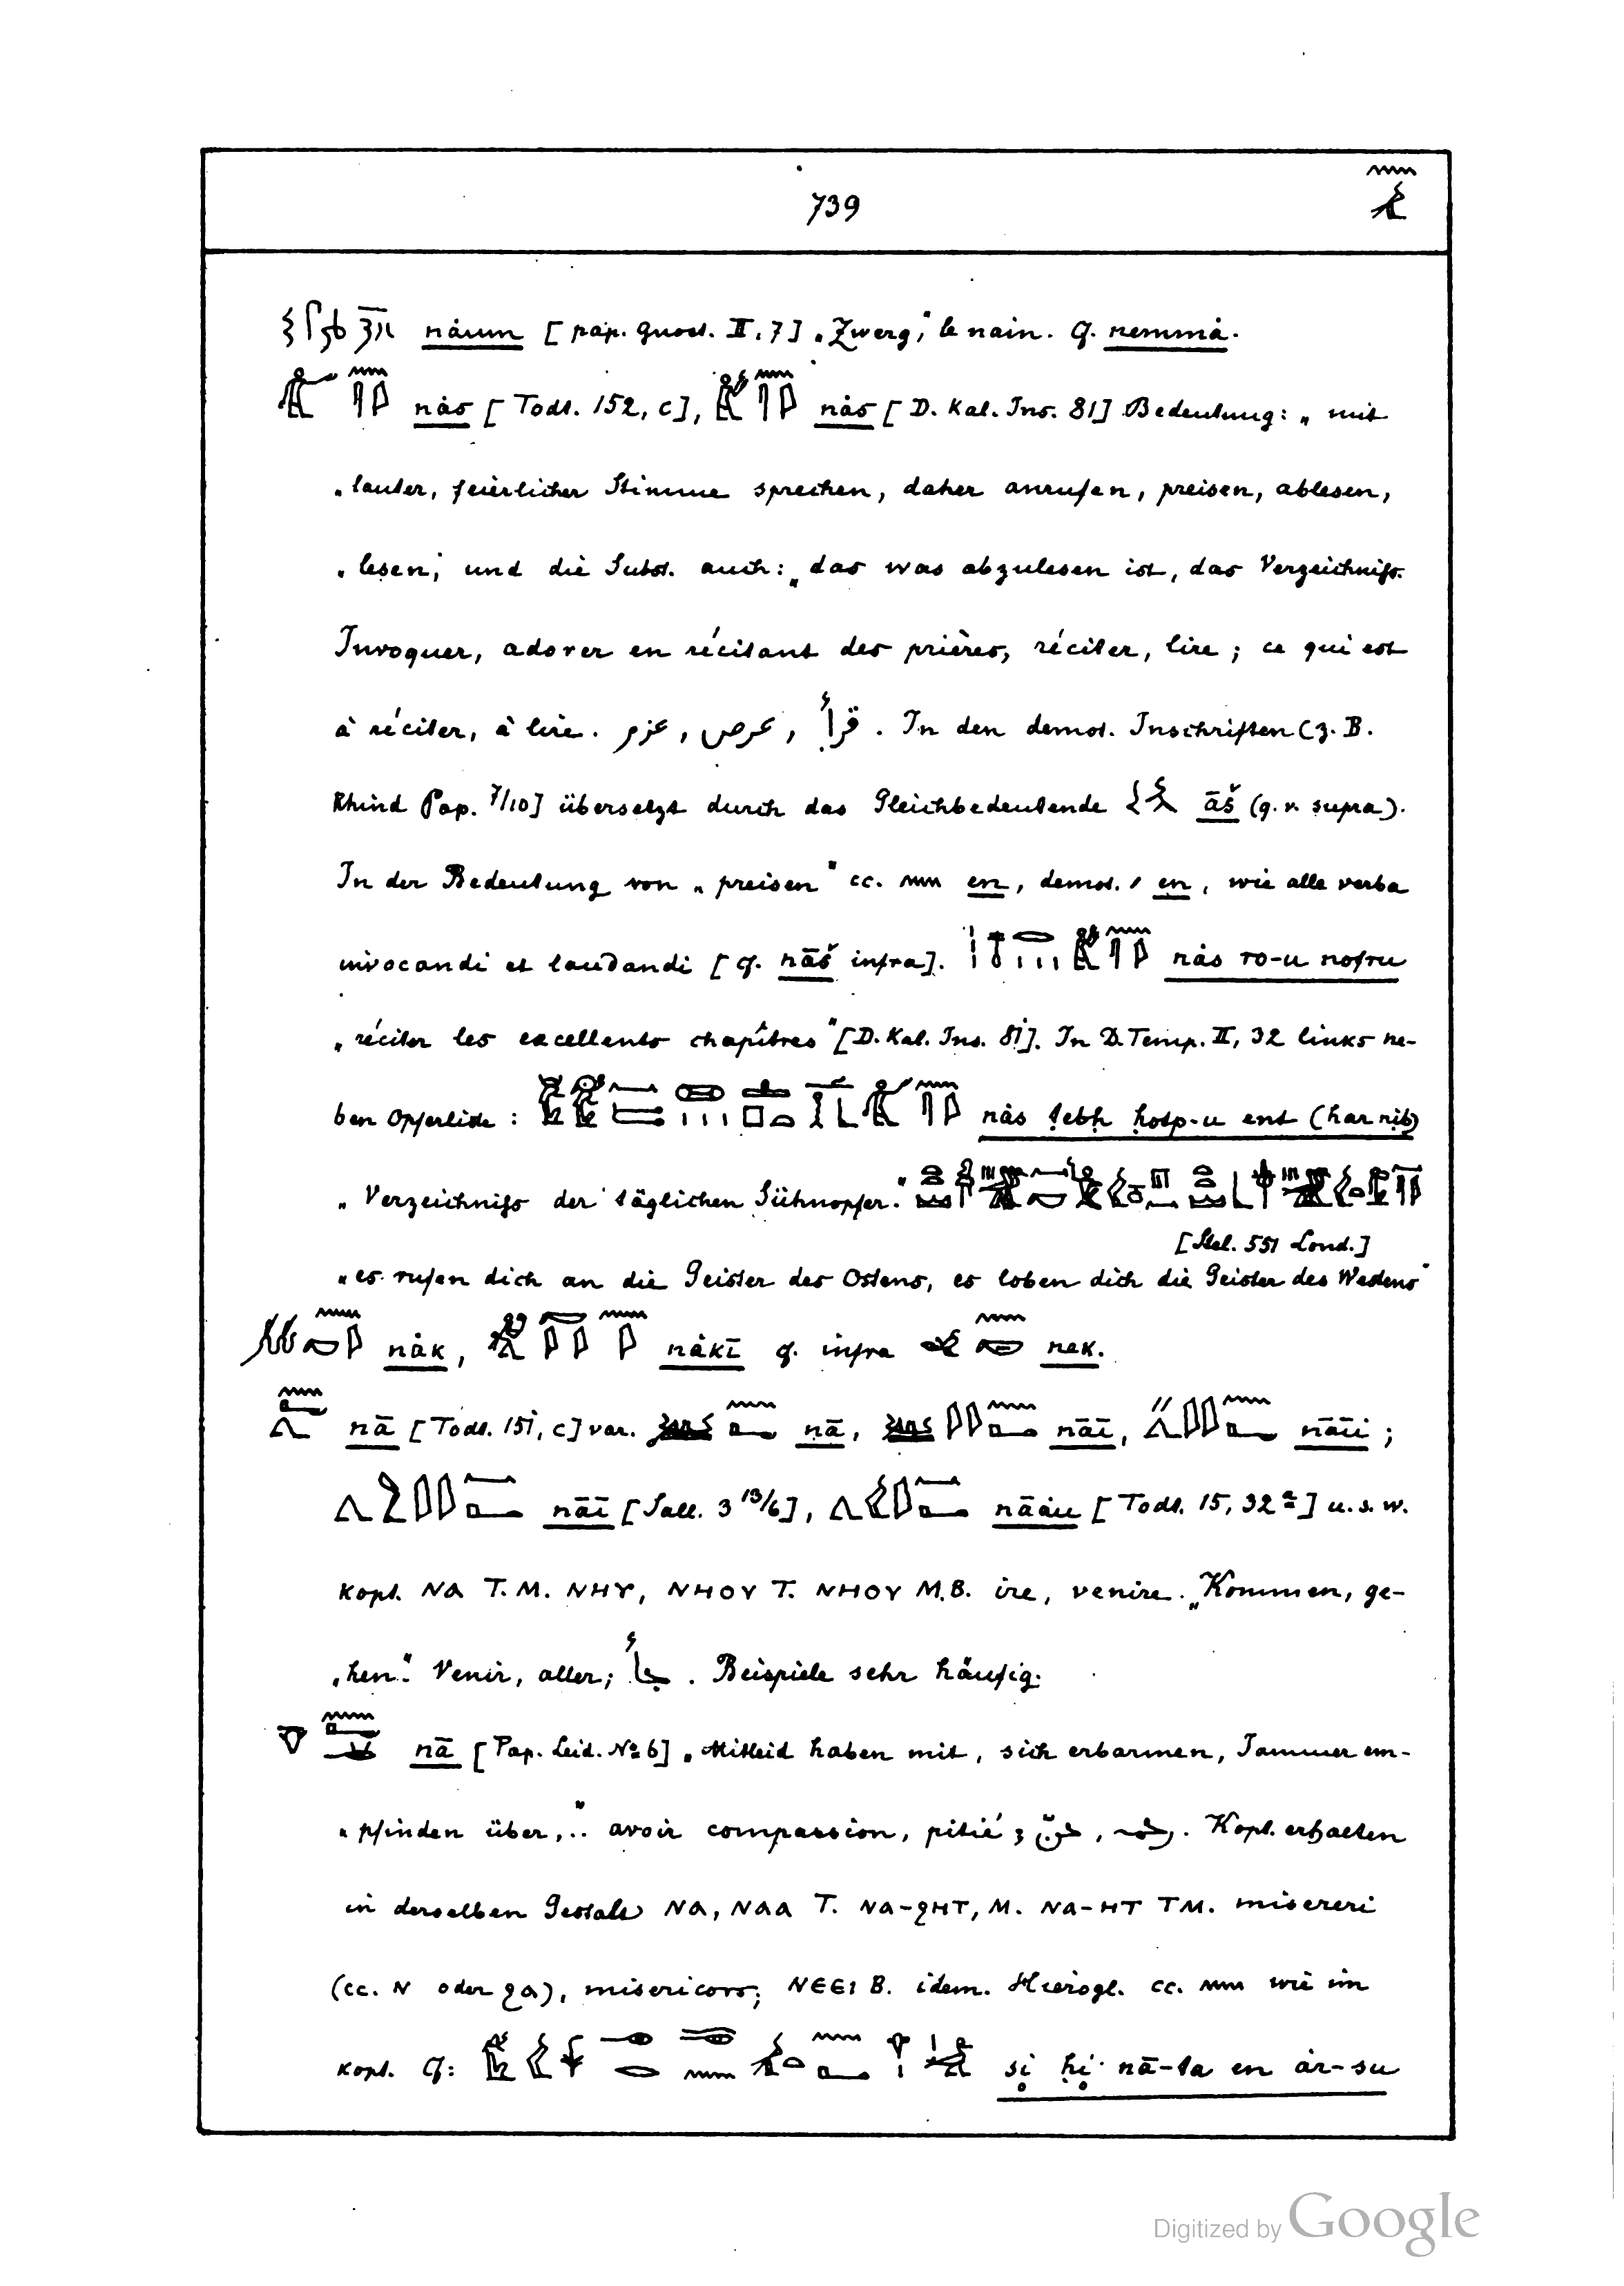 739
nȧum [pap. gnost. II, 7] „Zwerg," le nain. Cf. nemmȧ.
nȧs [Todt. 152, c], nȧs [D. Kal. Ins. 81] Bedeutung: „mit
„lauter, feierlicher Stimme sprechen, daher anrufen, preisen, ablesen,
„lesen," und die Subst. auch: „das was abzulesen ist, das Verzeichniß.
Invoquer, adorer en récitant des prières, réciter, lire; ce qui est
à réciter, à lire. عزم, عرض, قرأ. In den demot. Inschriften (z. B.
Rhind Pap. 7/10] übersetzt durch das Gleichbedeutende āš (q. v. supra).
In der Bedeutung von „preisen" cc. en, demot. en, wie alle verba
invocandi et laudandi [cf. nāš infra]. nȧs ro-u nofru
„réciter les excellents chapîtres" [D. Kal. Ins. 81]. In D. Temp. II, 32 links ne-
ben Opferliste: nȧs ṭebḥ ḥotp-u ent (har nib)
„Verzeichniß der täglichen Sühnopfer."
[Stel. 551 Lond.]
„es rufen dich an die Geister des Ostens, es loben dich die Geister des Westens"
nȧk, nȧkī cf. infra nek.
nā [Todt. 151, c] var. nā, nāī, nāīi;
nāī [Sall. 3 13/6], nāȧu [Todt. 15, 32 a] u. s. w.
kopt. ⲚⲀ T. M. ⲚⲎⲨ, ⲚⲎⲞⲨ T. ⲚⲎⲞⲨ M.B. ire, venire. „Kommen, ge-
„hen." Venir, aller; جأ. Beispiele sehr häufig.
nā [Pap. Leid. № 6] „Mitleid haben mit, sich erbarmen, Jammer em-
„pfinden über,.." avoir compassion, pitié; حنّ, رحمه. Kopt. erhalten
in derselben Gestalt ⲚⲀ, ⲚⲀⲀ T. ⲚⲀ-ϨⲎⲦ, M. ⲚⲀ-ⲎⲦ TM. misereri
(cc. Ⲛ oder ϨⲀ), misericors; ⲚⲈⲈⲒ B. idem. Hierogl. cc. wie im
kopt. Cf: si ḥi nā-ta en ȧr-su
Digitized by Google